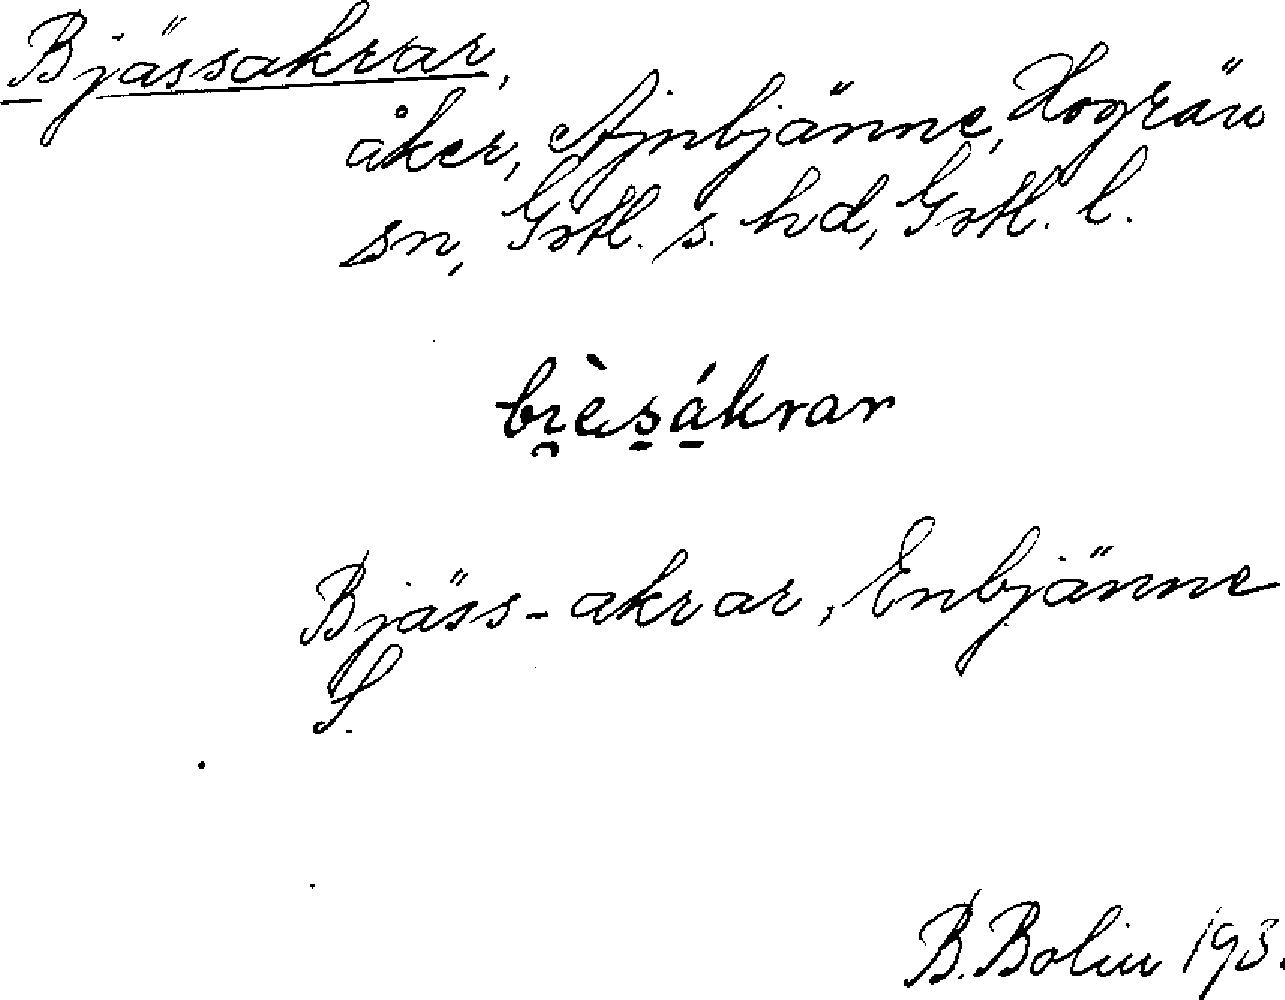 Bjässakrar,
åker, Ajnbjänne, Hogrän
sn, Gotl. s. hd, Gotl. l.
bi̯èsákrar
Bjäss-akrar, Enbjänne
S.
B. Bolin 193.